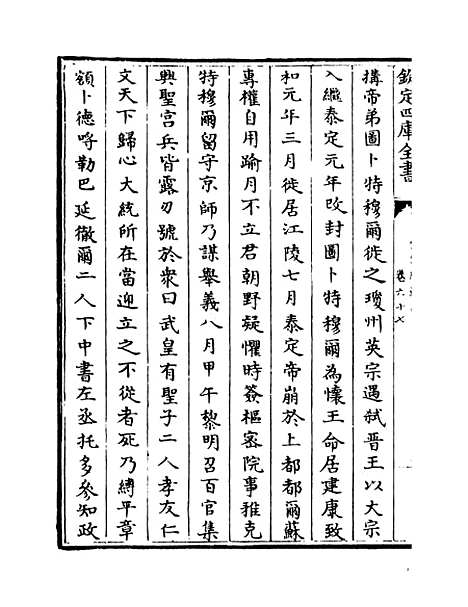 欽定四庫全書
卷六十七
搆帝弟圖卜特穆爾徙之瓊州英宗遇弑晋王以大宗
入繼泰定元年改封圖卜特穆爾為懷王命居建康致
和元年三月徙居江陵七月泰定帝崩於上都都爾蘇
專權自用踰月不立君朝野疑懼時簽樞宻院事雅克
特穆爾留守京師乃謀舉義八月甲午黎明召百官集
興聖宫兵皆露刃號於衆曰武皇有聖子二人孝友仁
文天下歸心大統所在當迎立之不從者死乃縛平章
額卜德呼勒巴延徹爾二人下中書左丞托多參知政